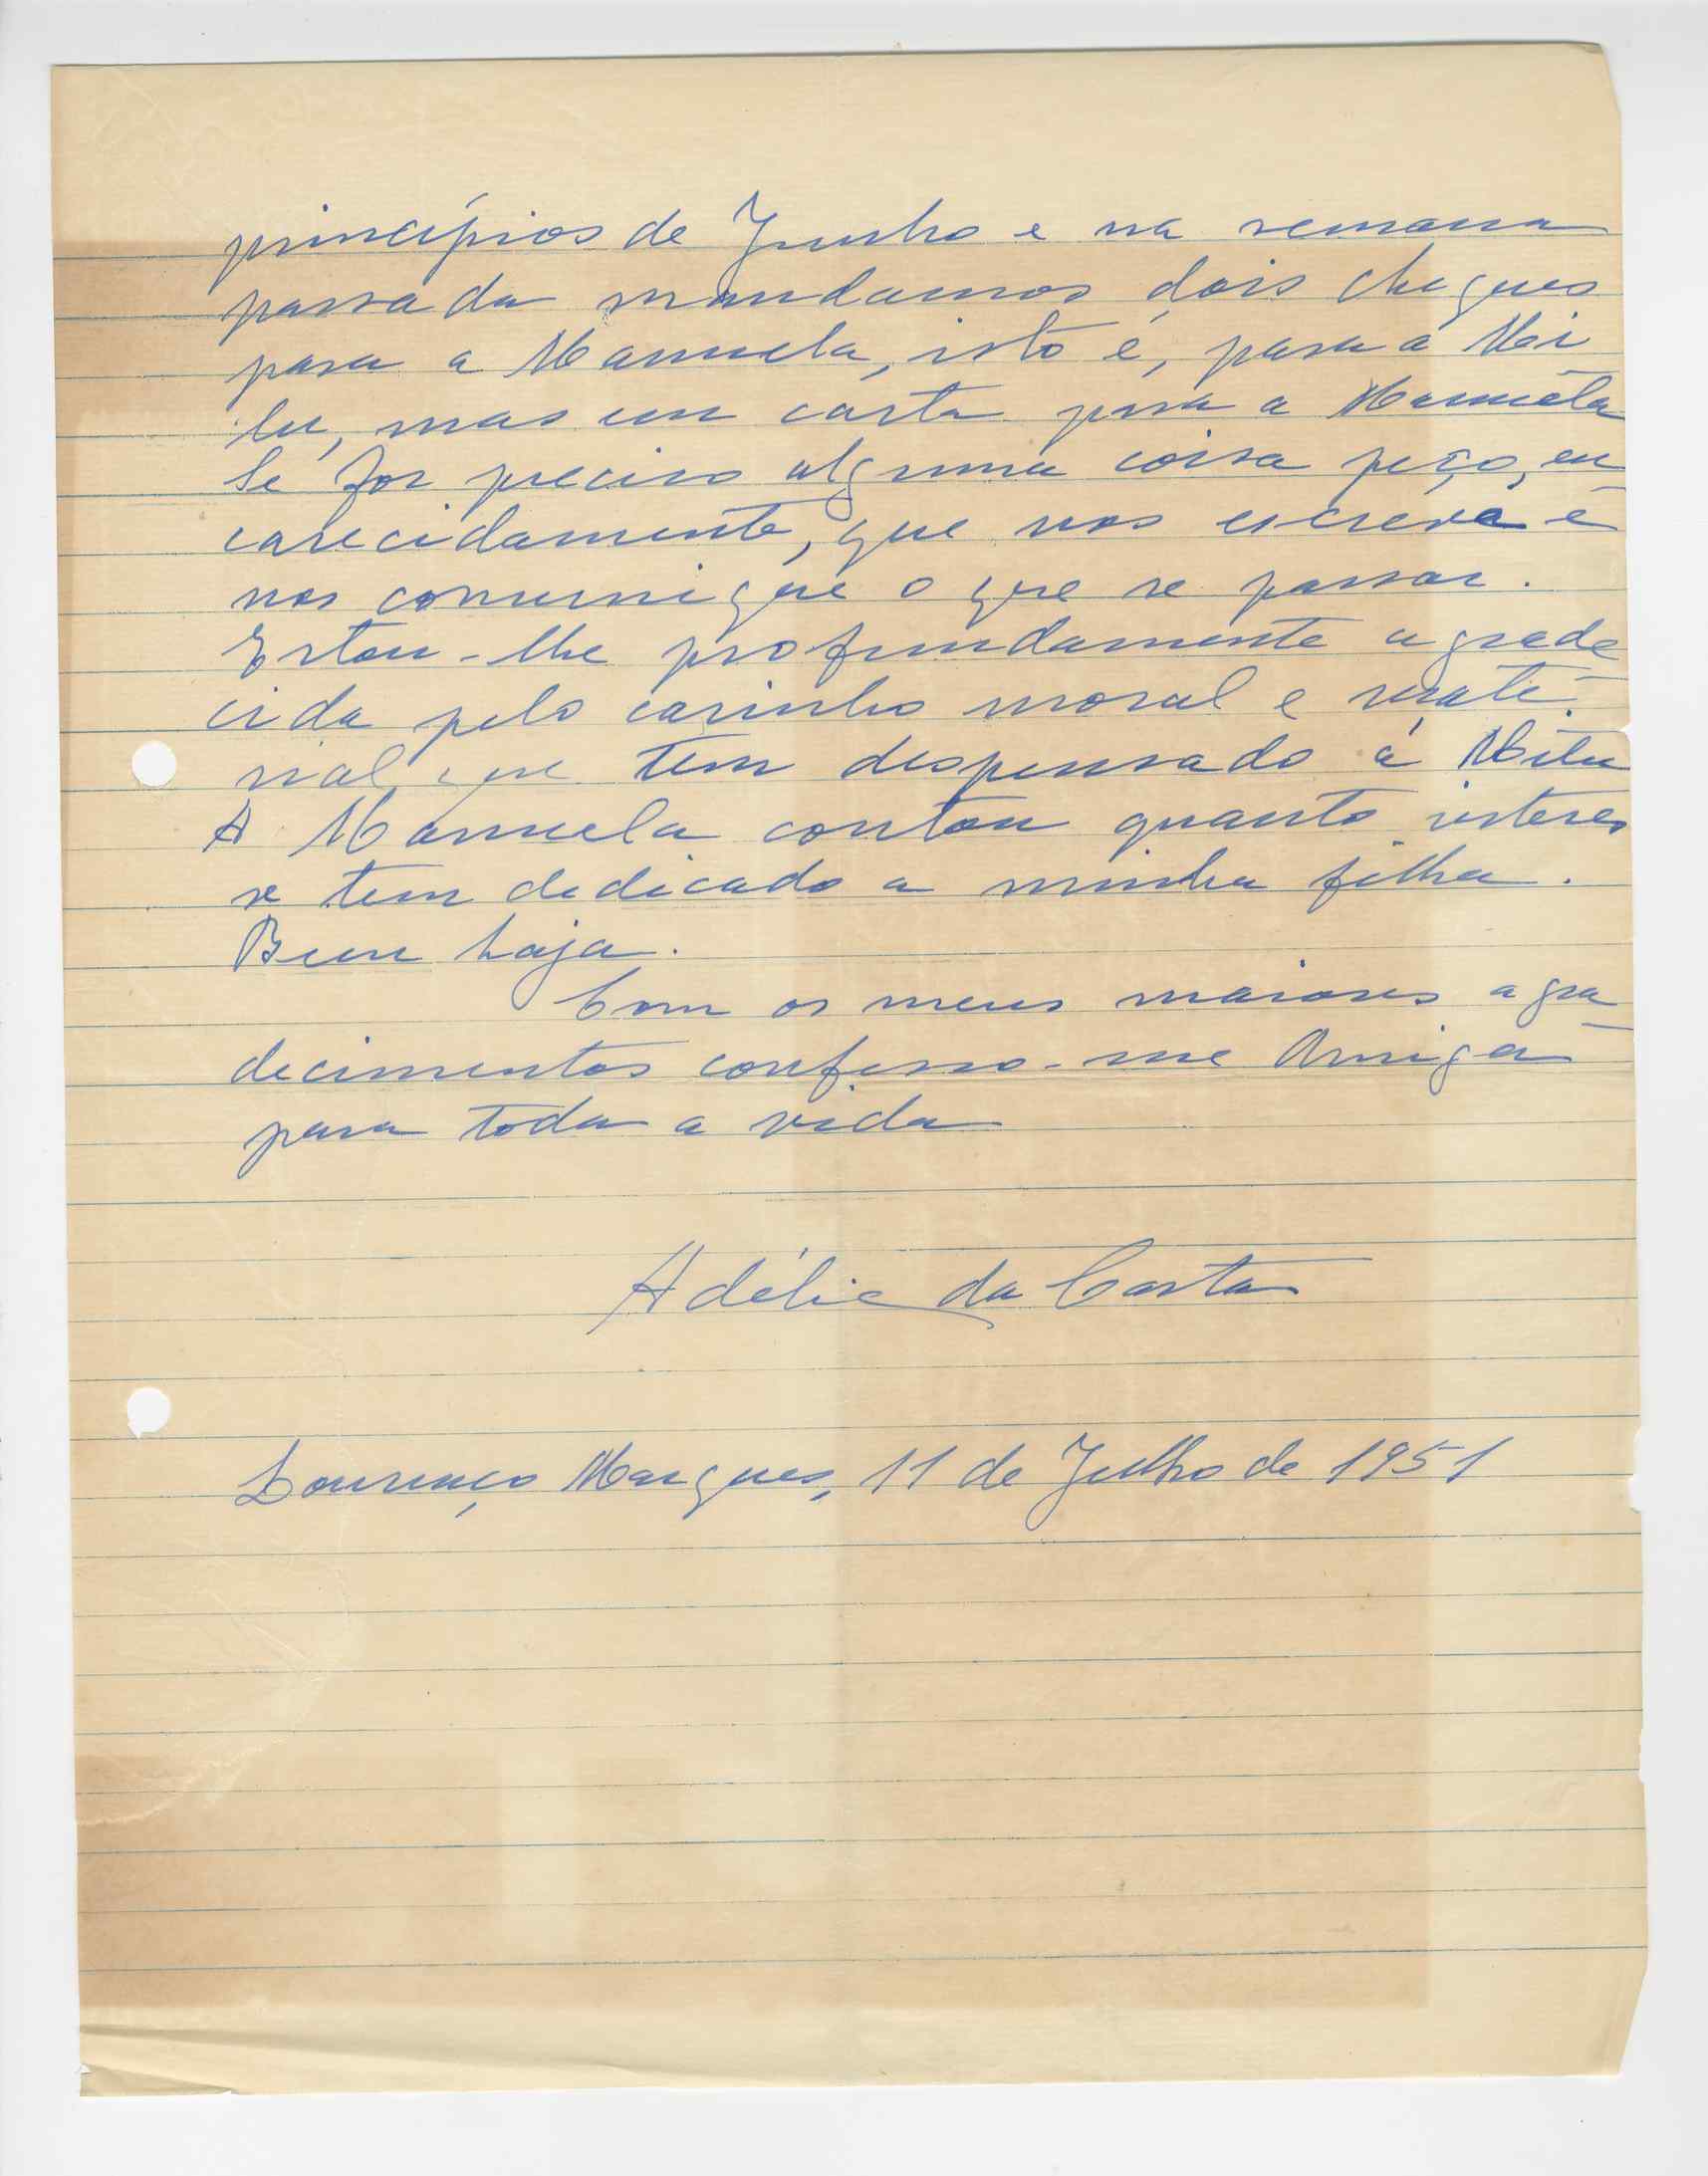 princípios de Junho e na semana
passada mandamos dois cheques
para a Manuela, isto é, para a Mi
lu, mas em carta para a Manuela
Se for preciso alguma coisa peço, en
carecidamente, que nos escreva e
nos comunique o que se passar.
Estou-lhe profundamente agrade
cida pelo carinho moral e maté-
rial que tem despensado à Milu
A Manuela contou quanto interes
se tem dedicado a minha filha.
Bem haja.
Com os meus maiores agra
decimentos confesso-me Amiga
para toda a vida
Adélia da Costa
Lourenço Marques, 11 de Julho de 1951